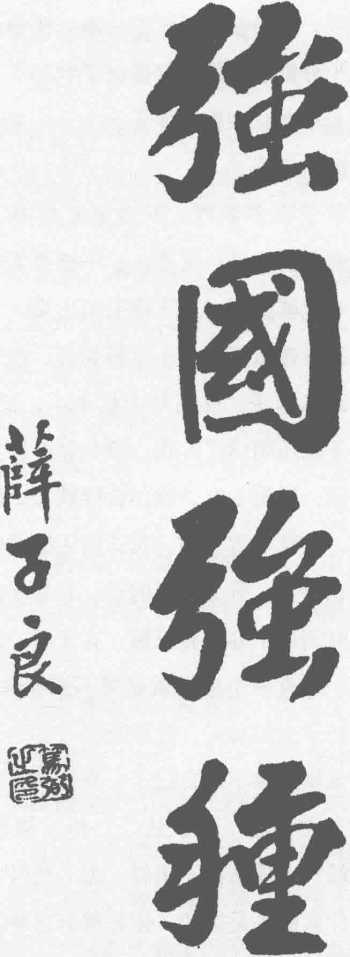 強國強種
薛子良